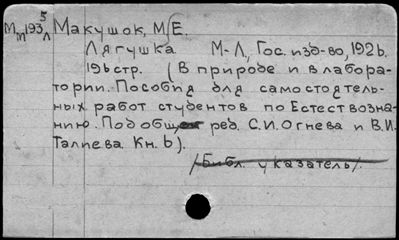 Мм 193 5 л Макушок, М.Е.
Лягушка М-Л, Гос. изд-во, 1926.
196 стр. (В природе и в лабора-
тории. Пособия для самостоятель-
ных работ студентов по Естествозна-
нию. Под общ. ред. С.И. Огнева и В.И.
Талиева Кн. 6).
/Библ. указатель/.